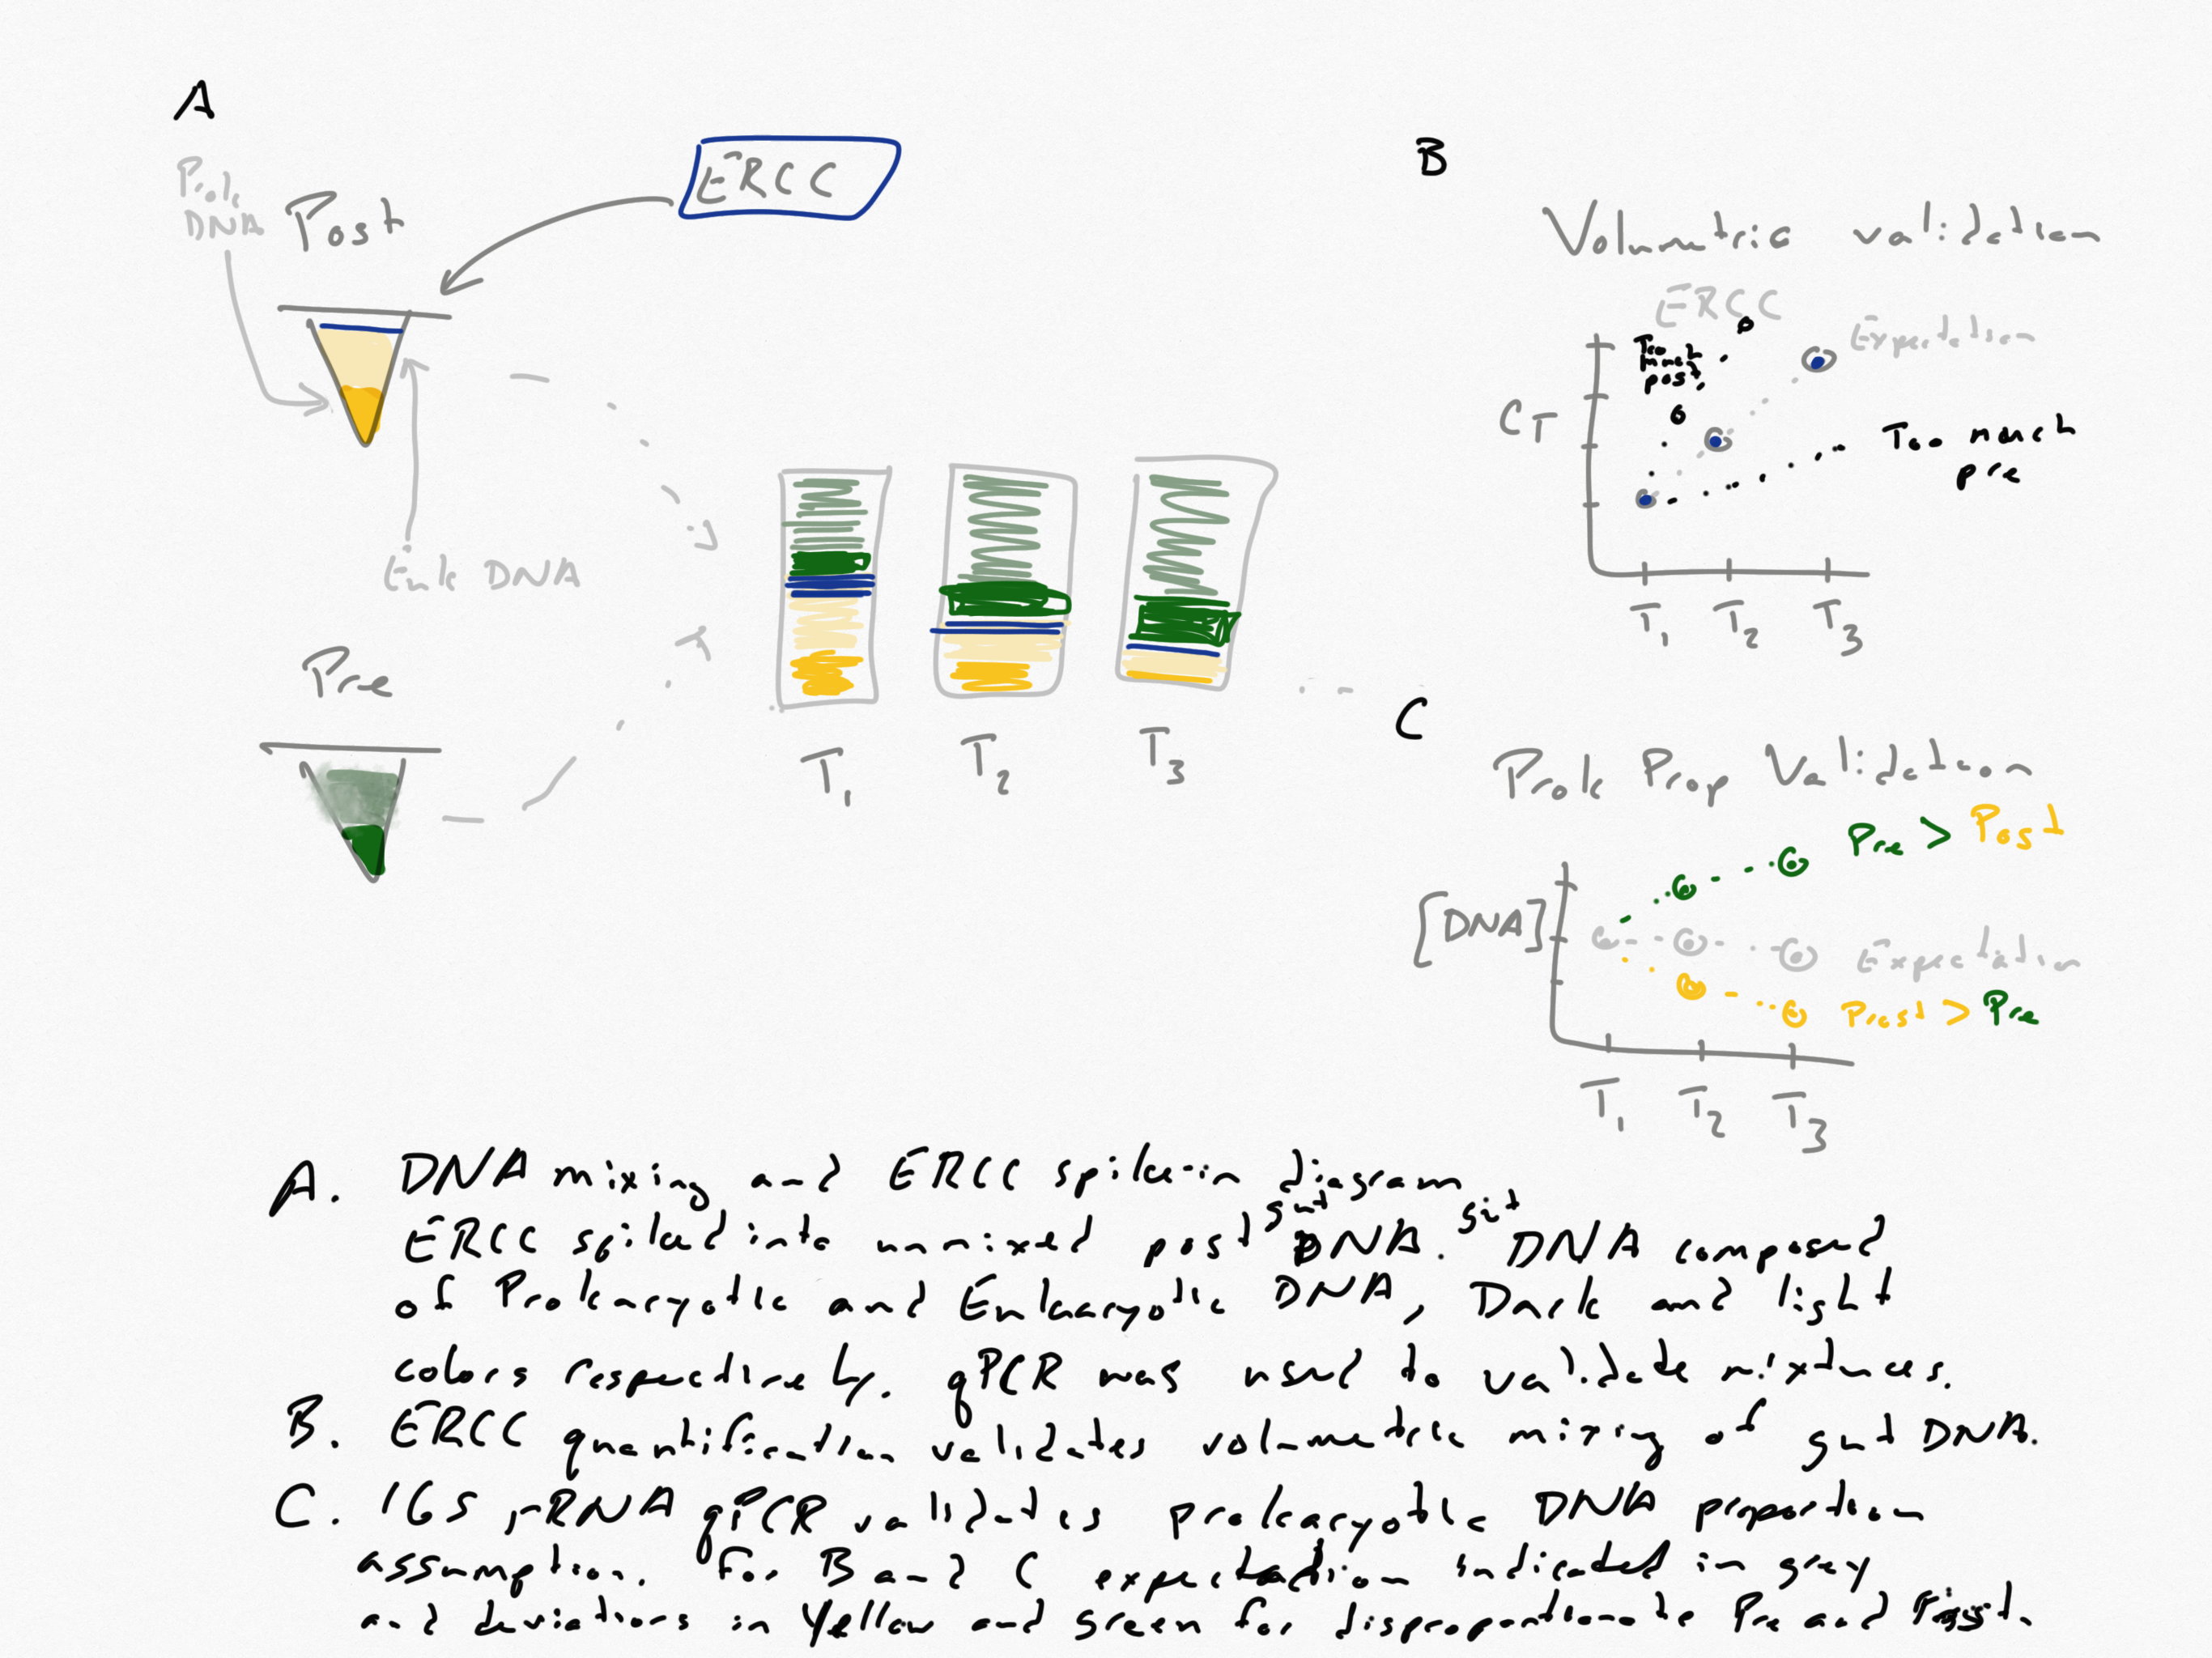 A
Prok
DNA
Post
ERCC
Euk DNA
Pre
T1
T2
T3
B
Volumetric validation
ERCC
Too
much
post
Expectation
CT
Too much
pre
T1
T2
T3
C
Prok Prop Validation
Pre > Post
[DNA]
Expectation
Post > Pre
T1
T2
T3
A. DNA mixing and ERCC spike-in diagram
ERCC spiked into unmixed post gut DNA. gut DNA composed
of Prokaryotic and Eukaryotic DNA, Dark and light
colors respectively. qPCR was used to validate mixtures.
B. ERCC quantification validates volumetric mixing of gut DNA.
C. 16S rRNA qPCR validates prokaryotic DNA proportion
assumption. For B and C expectation indicated in grey
and deviations in Yellow and green for disproportionate Pre and Post.